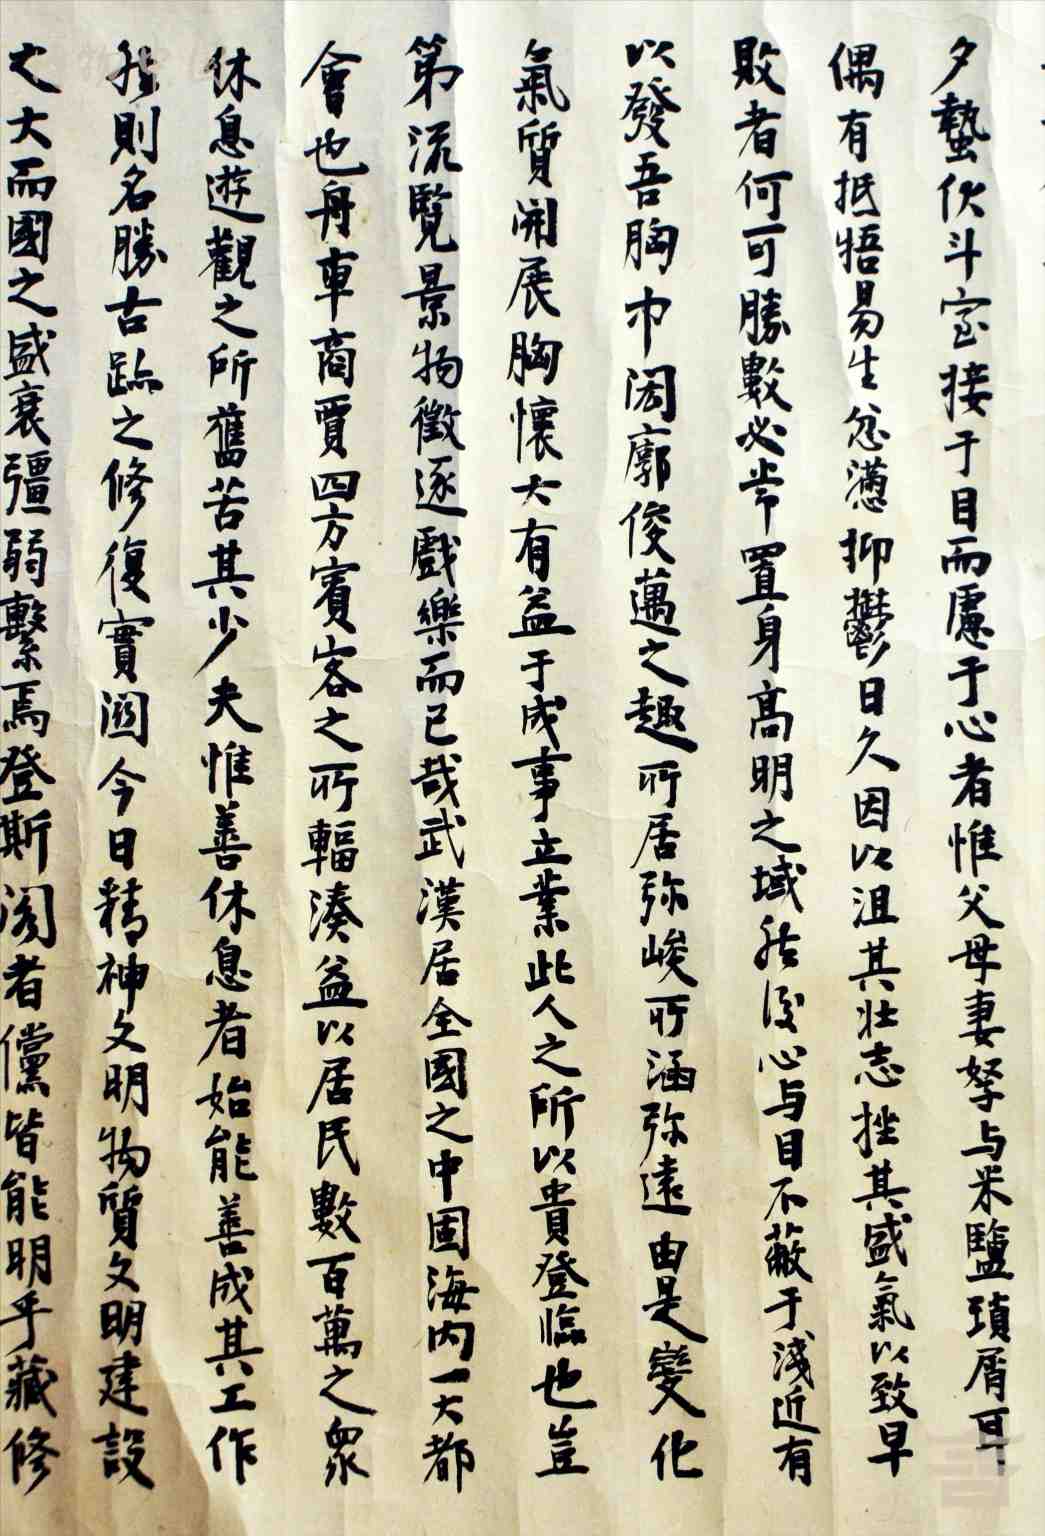 夕蟄伏斗室接于目而慮于心者惟父母妻孥与米鹽瑣屑耳
偶有抵牾易生忿懣抑鬱日久因以沮其壯志挫其盛氣以致早
敗者何可勝數必先置身高明之域然後心与目不蔽于淺近有
以發吾胸中閎廓俊邁之趣所居弥峻所涵弥遠由是變化
氣質開展胸懷大有益于成事立業此人之所以貴登臨也豈
第流覽景物徵逐戲樂而已哉武漢居全國之中固海内一大都
會也舟車商賈四方賓客之所輻湊益以居民數百萬之衆
休息遊觀之所舊苦其少夫惟善休息者始能善成其工作
然則名勝古跡之修復實關今日精神文明物質文明建設
之大而國之盛衰彊弱繫焉登斯閣者儻皆能明乎藏修